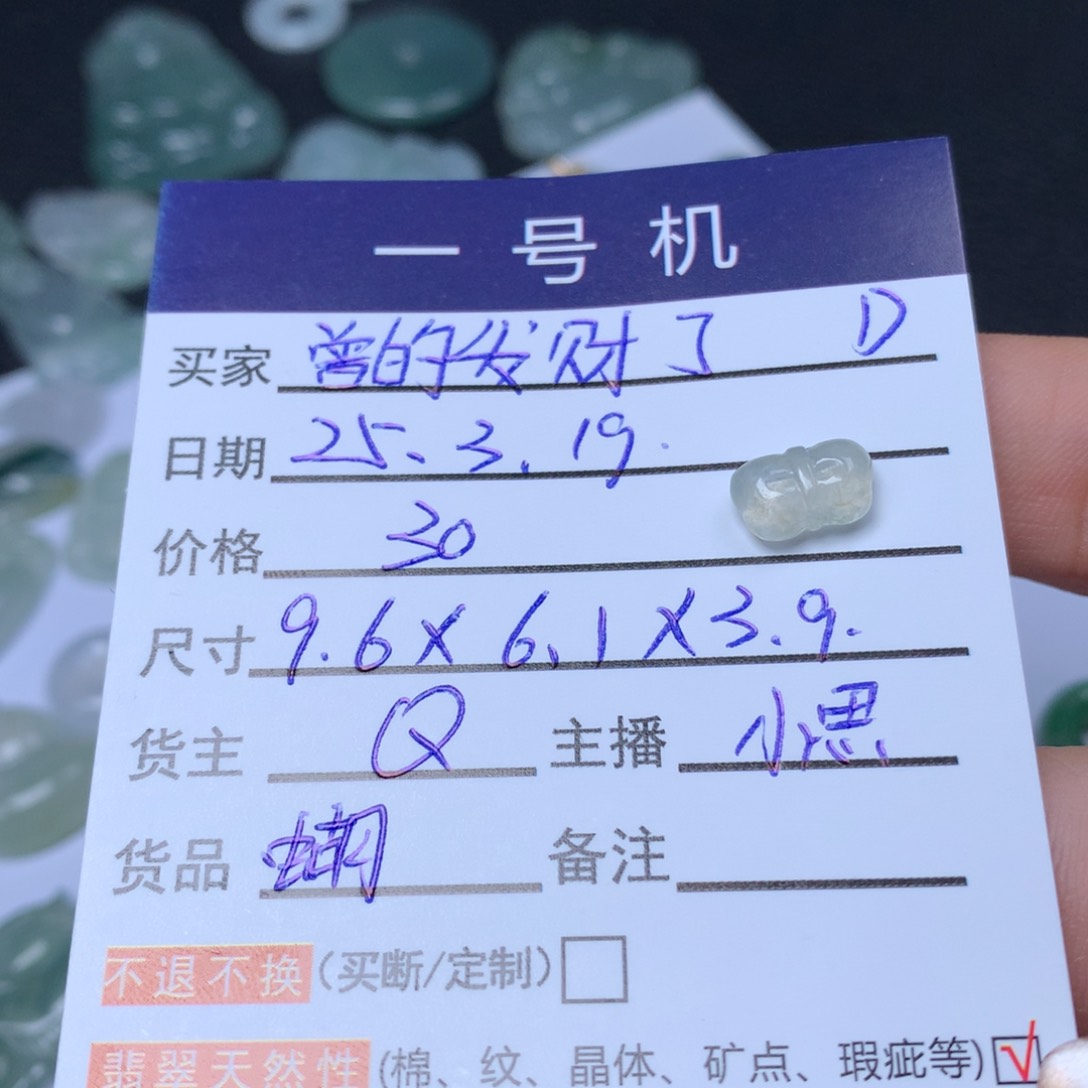 一号机
买家 曾的发财了 D
日期 25.3.19.
价格 30
尺寸 9.6×6.1×3.9.
货主 Q 主播 小思
货品 蝴 备注
不退不换(买断/定制)
翡翠天然性(棉、纹、晶体、矿点、瑕疵等)√